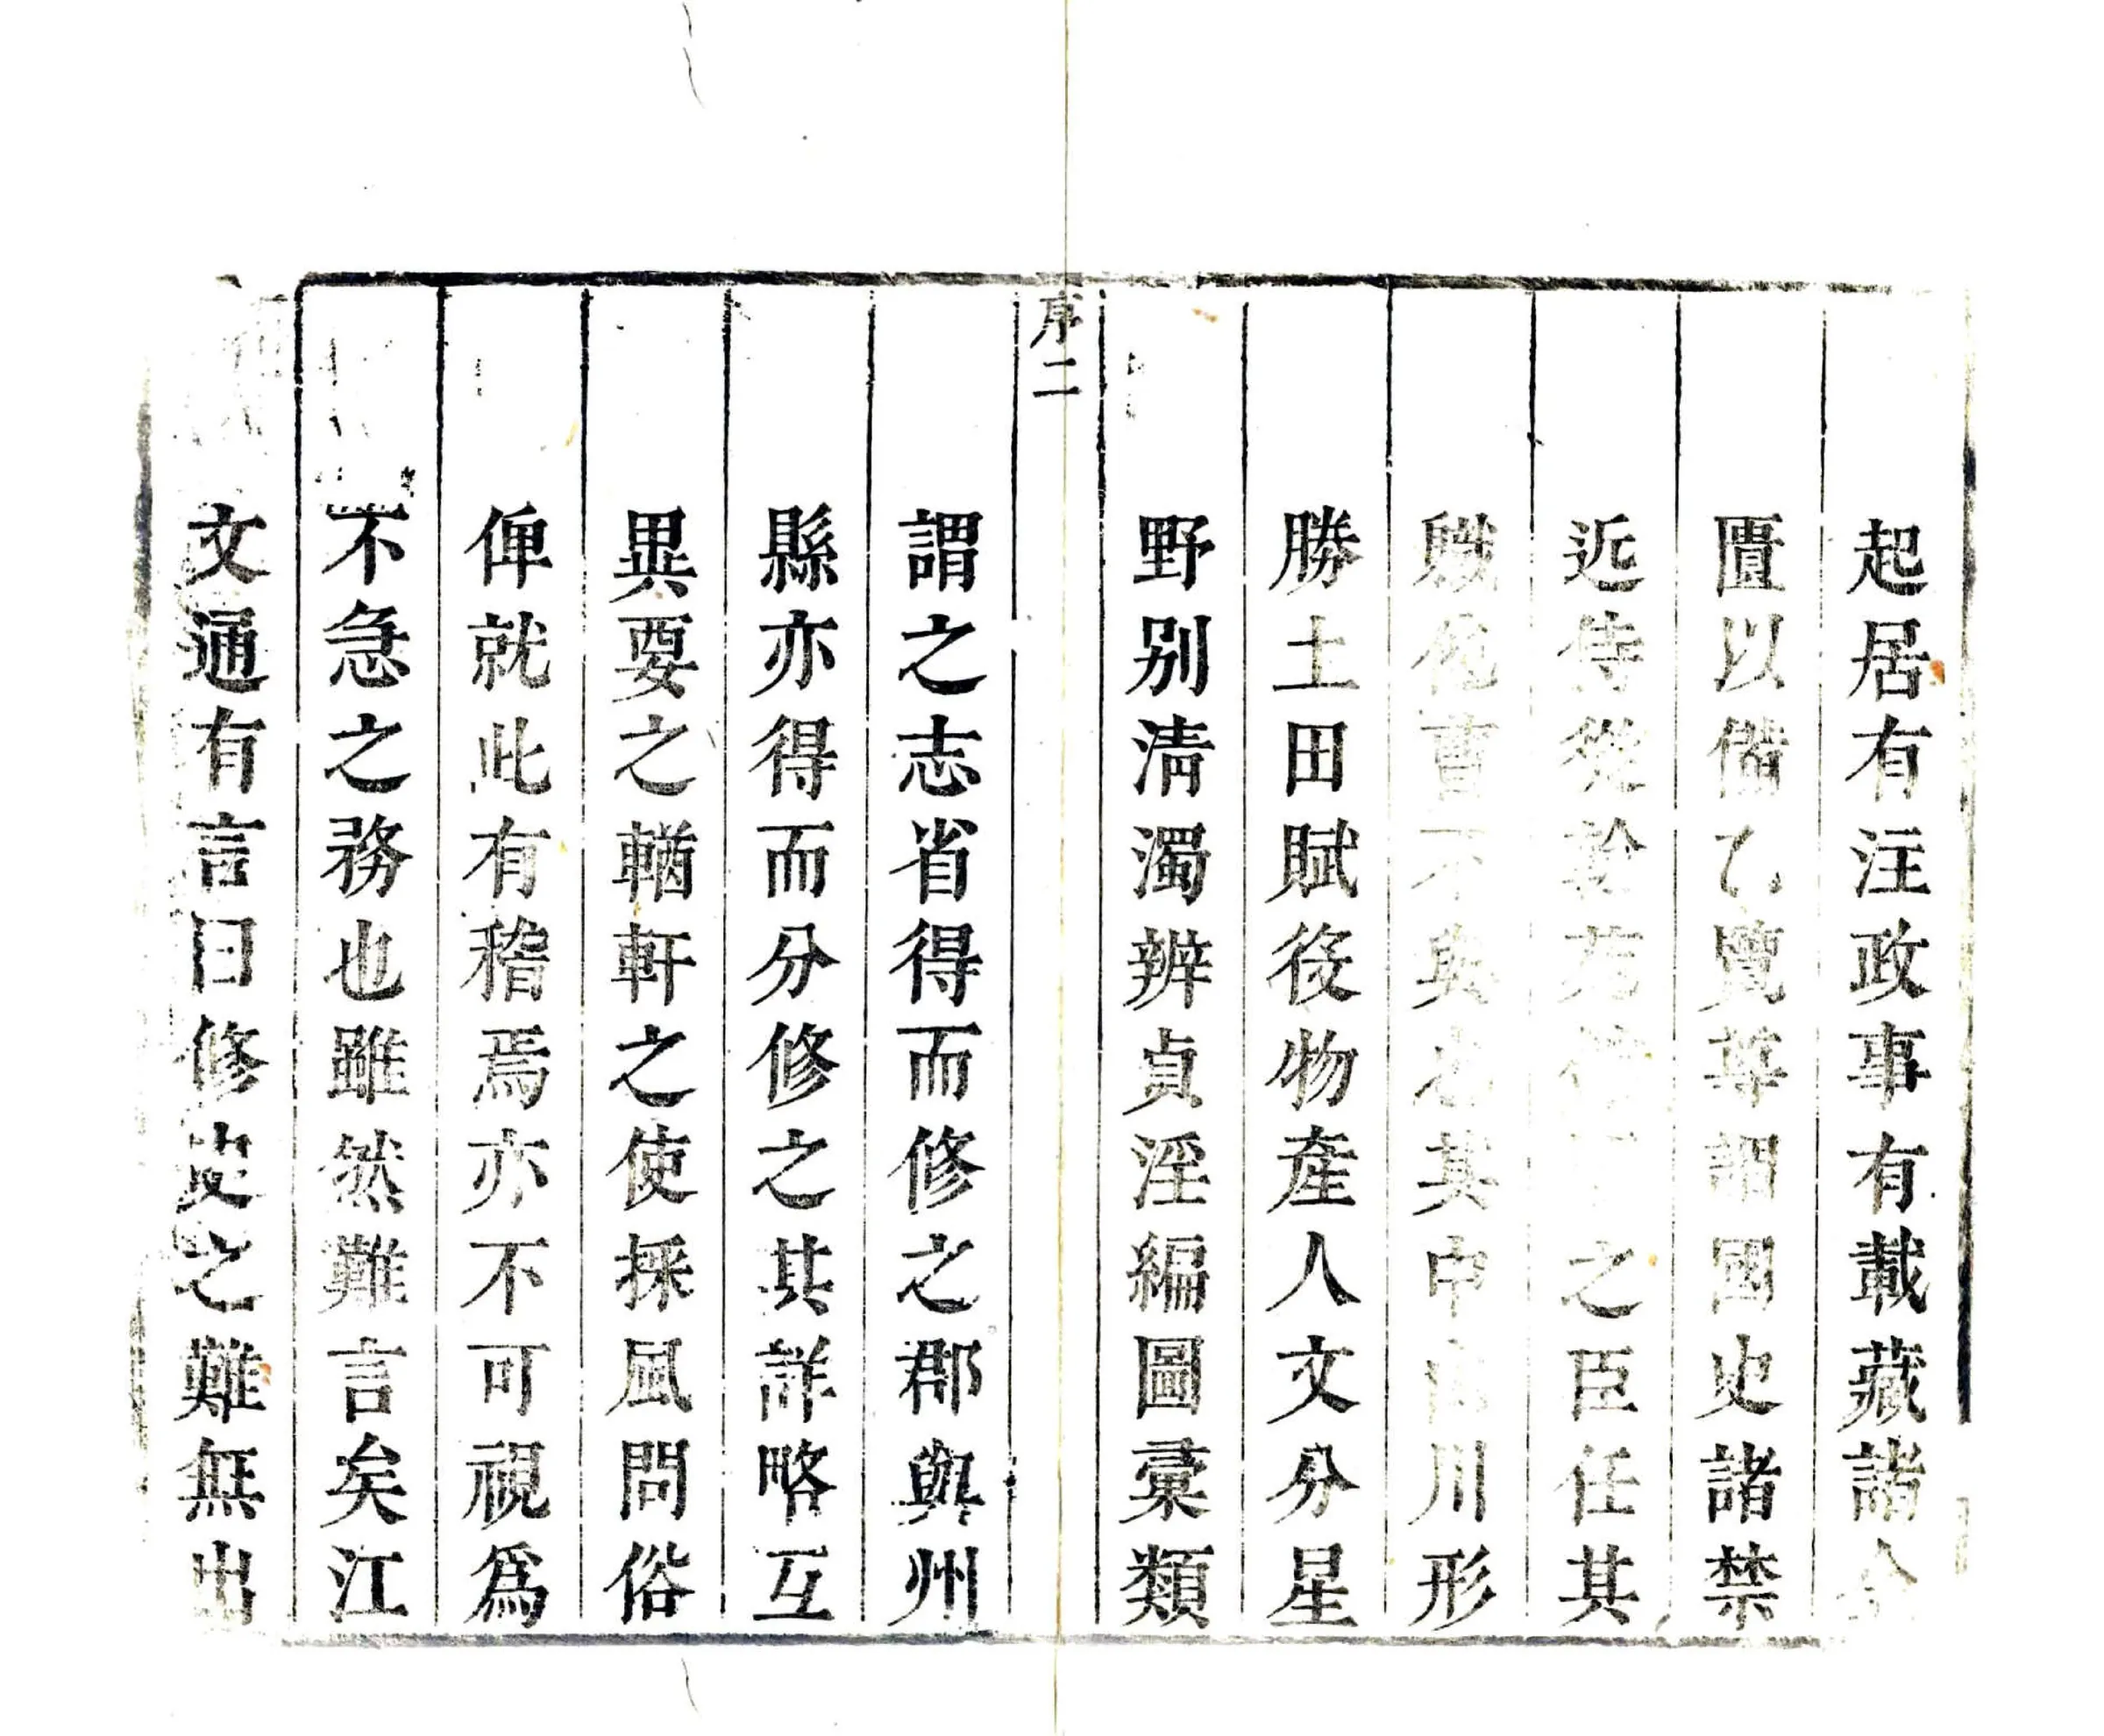 起居有注政事有載藏諸金
匱以備乙覽尊謂國史諸禁
近侍從於之臣任其
職他曹不與焉其中山川形
勝土田賦役物產人文分星
野別淸濁辨貞淫編圖彙類
序二
謂之志省得而修之郡與州
縣亦得而分修之其詳略互
異要之輶軒之使採風問俗
俾就此有稽焉亦不可視爲
不急之務也雖然難言矣江
文通有言曰修史之難無出